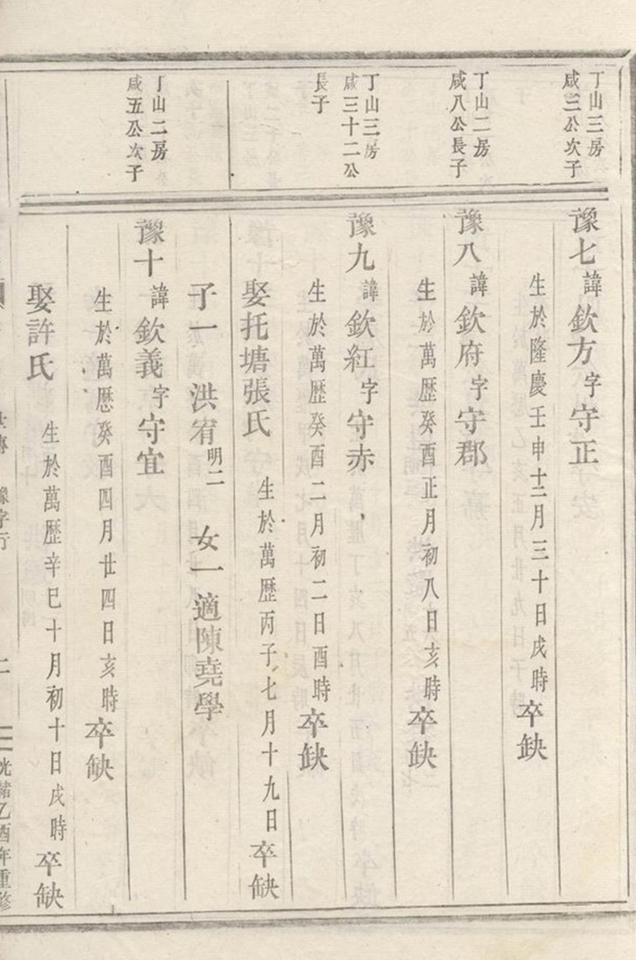 丁山三房
咸三公次子
豫七諱欽方字守正
生於隆慶壬申十二月三十日戌時卒缺
丁山二房
咸八公長子
豫八諱欽府字守郡
生於萬歷癸酉正月初八日亥時卒缺
丁山三房
咸三十二公
長子
豫九諱欽紅字守赤
生於萬歷癸酉二月初二日酉時卒缺
娶托塘張氏 生於萬歷丙子七月十九日卒缺
子一 洪宥明二 女一 適陳堯學
丁山二房
咸五公次子
豫十諱欽義字守宜
生於萬歷癸酉四月廿四日亥時卒缺
娶許氏 生於萬歷辛巳十月初十日戌時卒缺
豫字行
二
光緒乙酉年重修